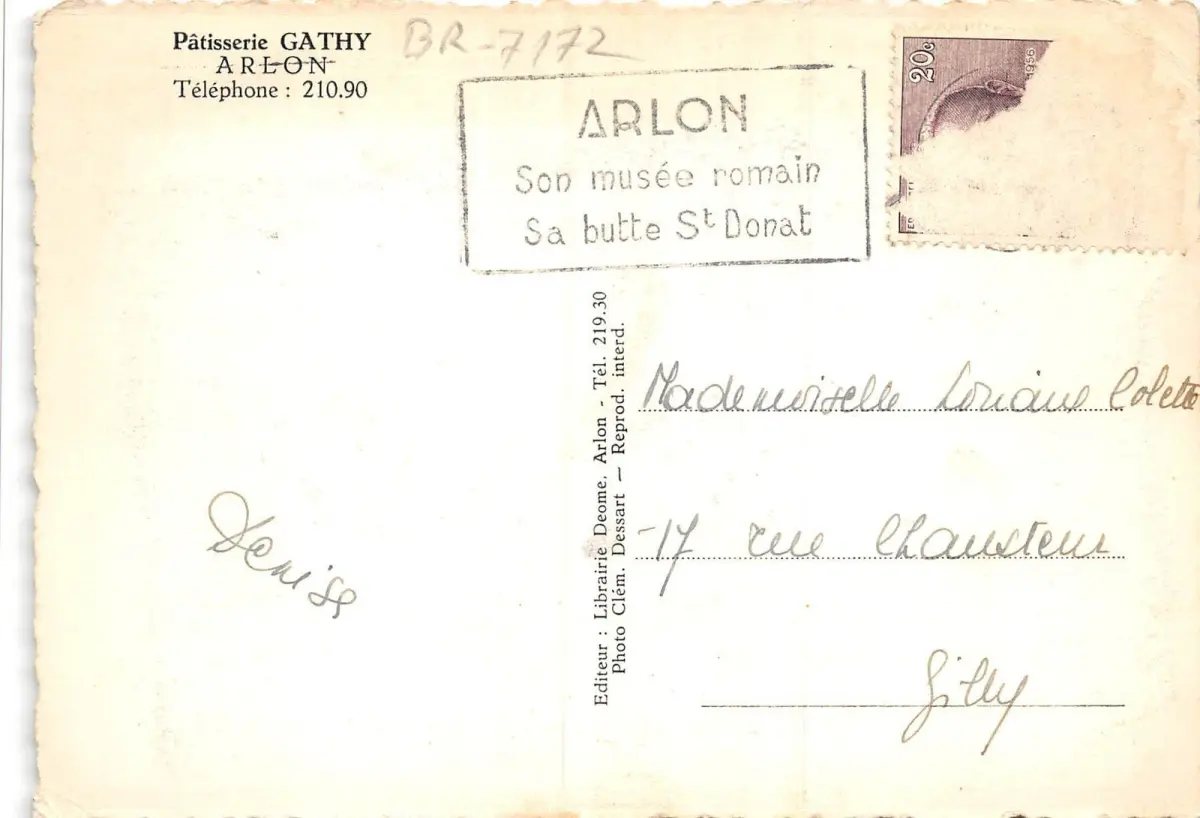 Pâtisserie GATHY
ARLON
Téléphone : 210.90
BR-7172
ARLON
Son musée romain
Sa butte St Donat
20c
1956
Editeur : Librairie Deome, Arlon - Tél. 219.30
Photo Clém. Dessart — Reprod. interd.
Mademoiselle Loriane Colette
17 rue Chausteur
Gilly
Denise